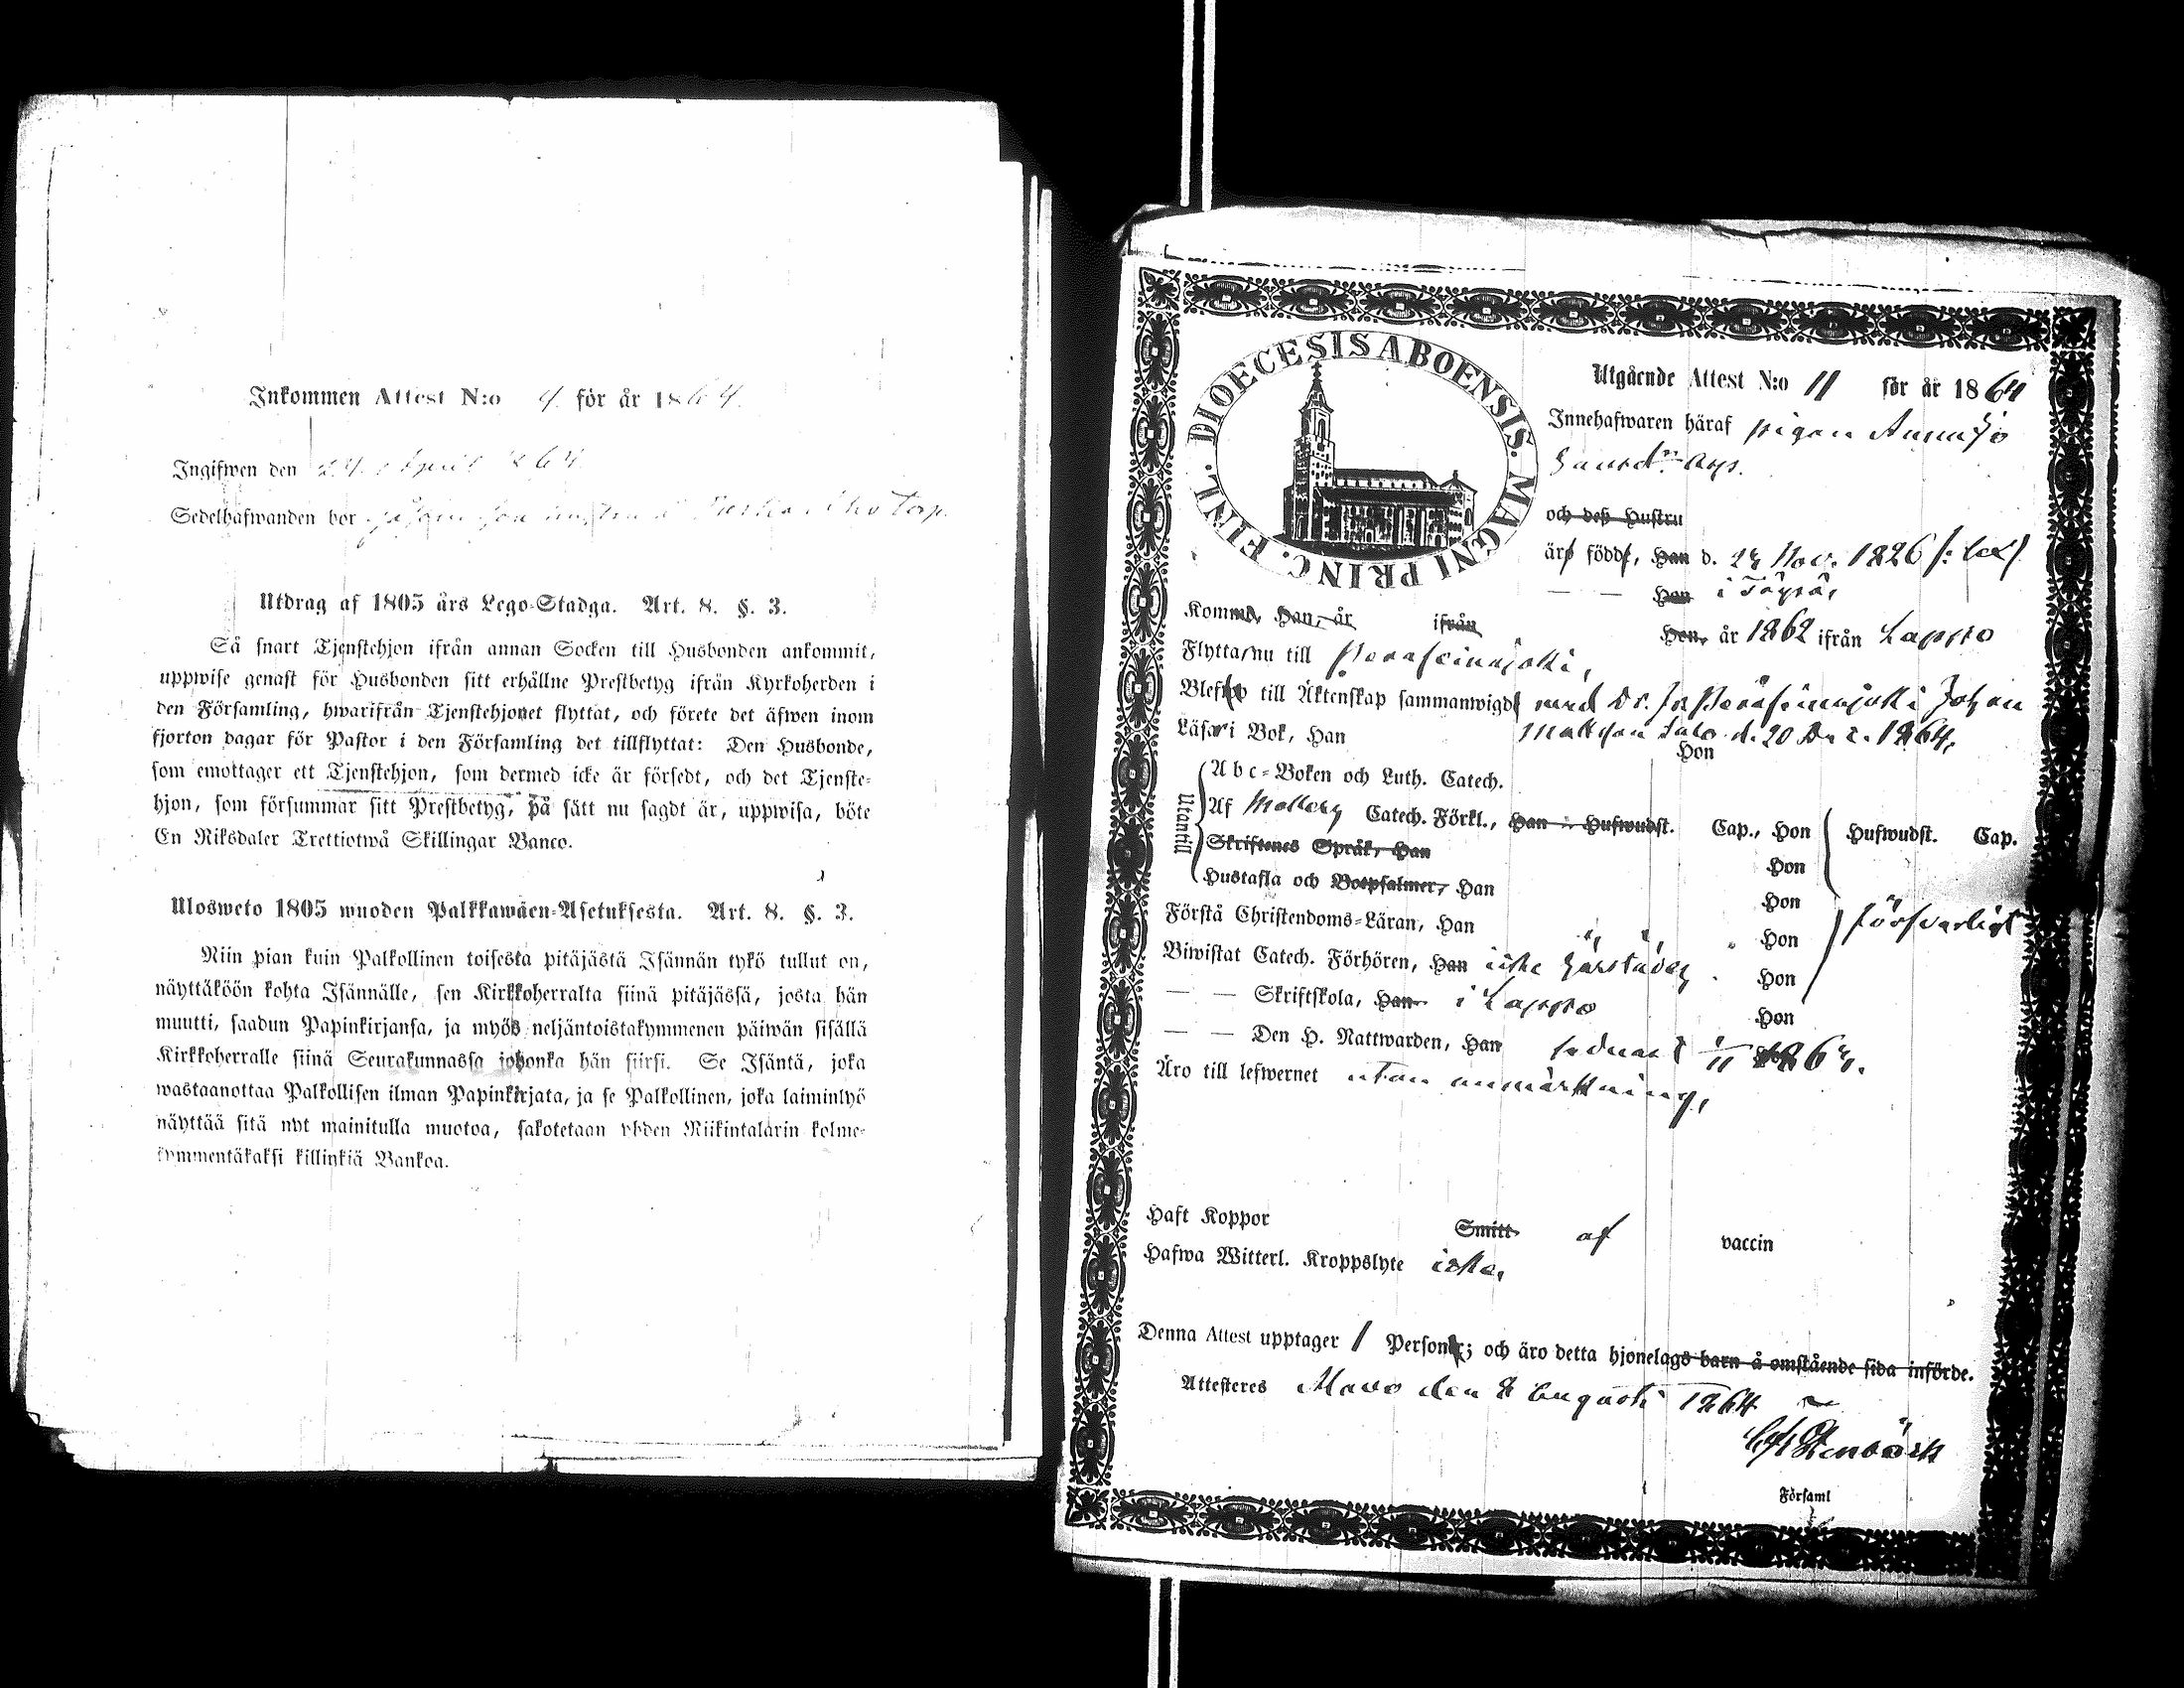 Inkommen Attest N:o 4. för år 1864.
Ingifwen den 24 April 1864
Sedelhafwanden bor
Utdrag af 1805 års Lego-Stadga. Art. 8. §. 3.
Så snart Tjenstehjon ifrån annan Socken till Husbonden ankommit,
uppwise genast för Husbonden sitt erhållne Prestbetyg ifrån Kyrkoherden i
den Församling, hwarifrån Tjenstehjonet flyttat, och förete det äfwen inom
fjorton dagar för Pastor i den Församling det tillflyttat: Den Husbonde,
som emottager ett Tjenstehjon, som dermed icke är försedt, och det Tjenste-
hjon, som försummar sitt Prestbetyg, på sätt nu sagdt är, uppwisa, böte
En Riksdaler Trettiotwå Skillingar Banco.
Ulosweto 1805 wuoden Palkkawäen-Asetuksesta. Art. 8. §. 3.
Niin pian kuin Palkollinen toisesta pitäjästä Isännän tykö tullut on,
näyttäköön kohta Isännälle, sen Kirkkoherralta siinä pitäjässä, josta hän
muutti, saadun Papinkirjansa, ja myös neljäntoistakymmenen päiwän sisällä
Kirkkoherralle siinä Seurakunnassa johonka hän siirsi. Se Isäntä, joka
wastaanottaa Palkollisen ilman Papinkirjata, ja se Palkollinen, joka laiminlyö
näyttää sitä nyt mainitulla muotoa, sakotetaan yhden Riikintalarin kolme-
kymmentäkaksi killinkiä Bankoa.
DIOECESIS ABOENSIS. MAGNI PRINC. FINL.
Utgående Attest N:o 11 för år 1864
Innehafwaren häraf pigan
och deß Hustru
äro födde, Han d. 28 Nov. 1826
— — Hon i Töysä,
Komne, Han, år ifrån Hon, år 1862 ifrån Lappo
Flytta nu till Peräseinäjoki,
Blefwo till Äktenskap sammanwigde med Dr. fr Peräseinäjoki Johan
Mattsson Salo d. 20 1864,
Läsa i Bok, Han Hon
Utantill
Abc-Boken och Luth. Catech.
Af Möllers Catech. Förkl., Han Hufwudst. Cap., Hon Hufwudst. Cap.
Skriftenes Språk, Han Hon
Hustafla och Botpsalmer, Han Hon
Förstå Christendoms-Läran, Han Hon försvarligt
Biwistat Catech. Förhören, Han icke härstädes Hon
— — Skriftskola, Han i Lappo Hon
— — Den H. Nattwarden, Han sednast
Äro till lefwernet utan anmärkning,
Haft Koppor Smitt af vaccin
Hafwa Witterl. Kroppslyte icke,
Denna Attest upptager 1 Personer; och äro detta hjonelags barn å omstående sida införde.
Attesteres Alavo den 8 Augusti 1864
Stenbäck
Församl